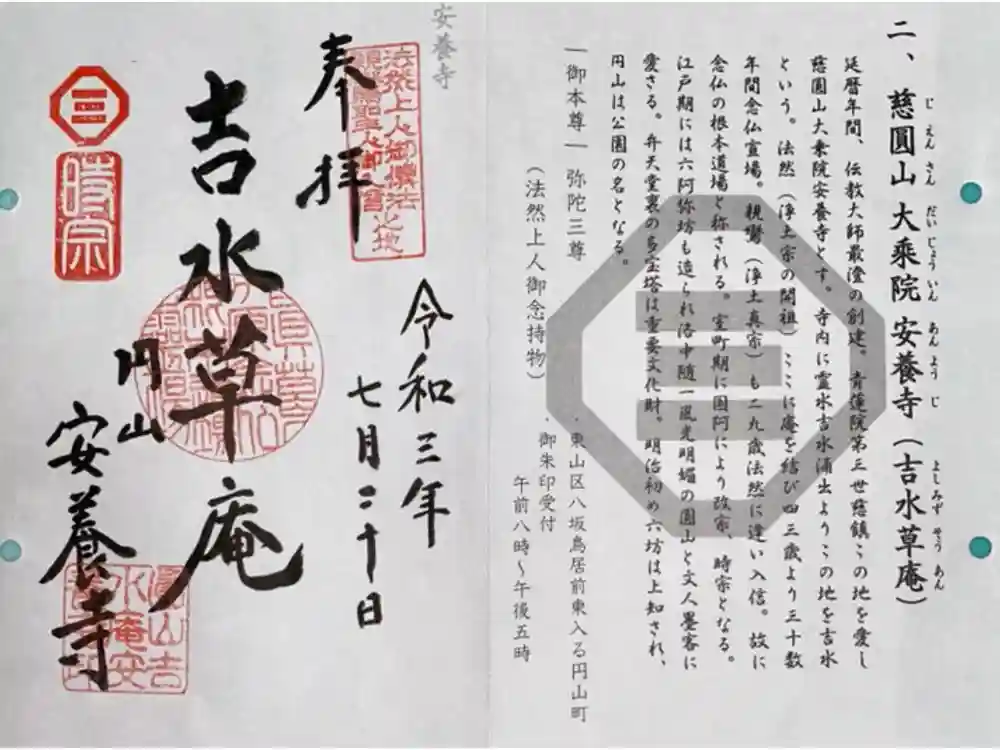 二、慈圓山 大乗院 安養寺（吉水草庵）
じ えん さん だい じょう いん あん よう じ よしみず そう あん
延暦年間、伝教大師最澄の創建。青蓮院第三世慈鎮この地を愛し
慈圓山大乗院安養寺とす。寺内に霊水吉水涌出ようこの地を吉水
という。法然（浄土宗の開祖）ここに庵を結び四三歳より三十数
年間念仏宣場。親鸞（浄土真宗）も二九歳法然に逢い入信。故に
念仏の根本道場と称される。室町期に国阿により改宗、時宗となる。
江戸期には六阿弥坊も造られ洛中随一風光明媚の圓山と文人墨客に
愛さる。弁天堂裏の多宝塔は重要文化財。明治初め六坊は上知され、
円山は公園の名となる。
―御本尊― 弥陀三尊
（法然上人御念持物）
・東山区八坂鳥居前東入る円山町
・御朱印受付
午前八時～午後五時
安養寺
奉拝
法然上人御懐法之地
令和三年
七月二十日
吉水草庵
円山
安養寺
三
時宗